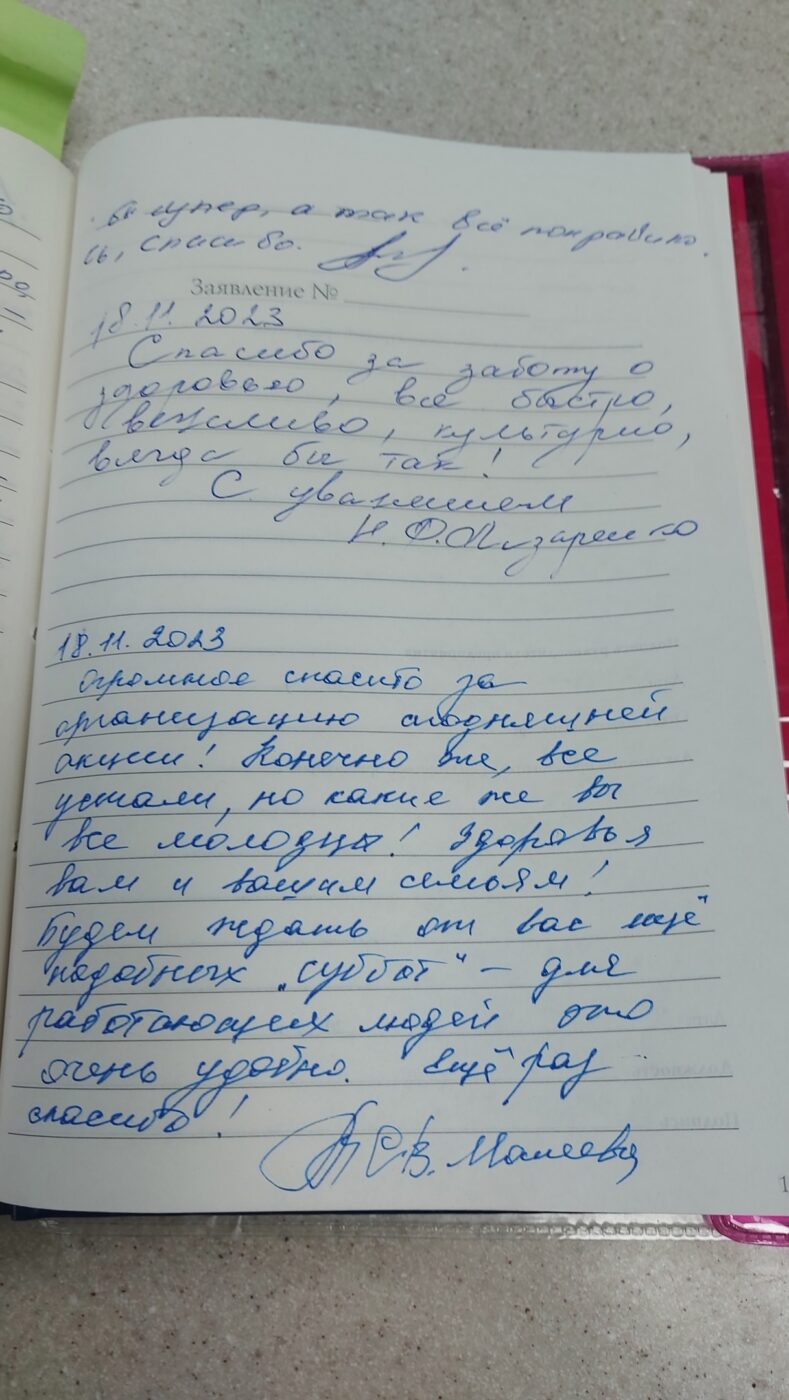 бы супер, а так всё понравило
сь, спасибо.
Заявление №
18.11.2023
Спасибо за заботу о
здоровье, все быстро,
вежливо, культурно,
всегда бы так!
С уважением
Н.Ф.
18.11.2023
огромное спасибо за
организацию сегодняшней
акции! Конечно же, все
устали, но какие же вы
все молодцы! Здоровья
вам и вашим семьям!
Будем ждать от вас ещё
подобных „суббот" – для
работающих людей это
очень удобно. Ещё раз
спасибо!
С.В.